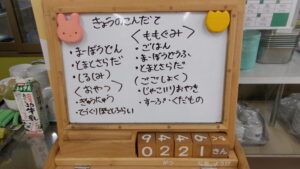 きょうのこんだて
・まーぼうどん
・とまとさらだ
・しる(み)
<おやつ>
・ぎゅうにゅう
・てづくりぽてとふらい
<ももぐみ>
・ごはん
・まーぼうどうふ
・とまとさらだ
(ごごしょく)
・じゃこいりおやき
・すーぷ・くだもの